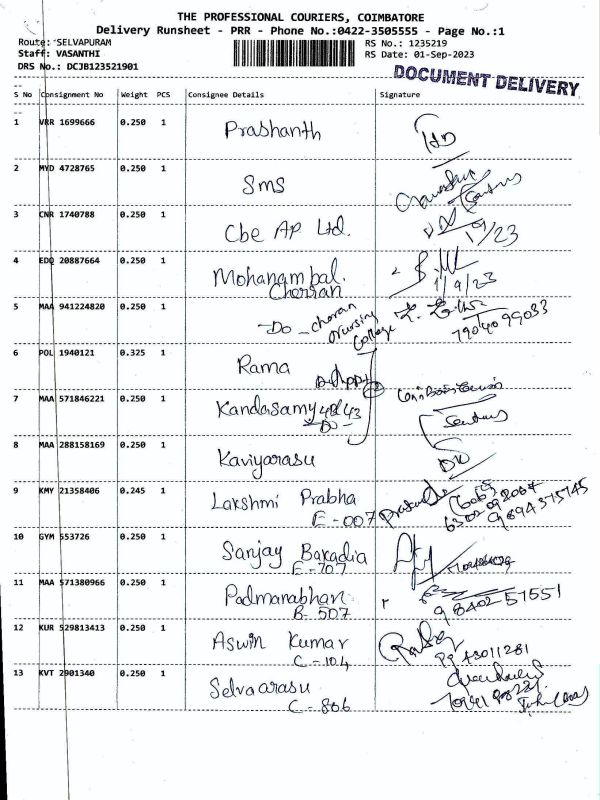 THE PROFESSIONAL COURIERS, COIMBATORE
Delivery Runsheet - PRR - Phone No.:0422-3505555 - Page No.:1
Route: SELVAPURAM RS No.: 1235219
Staff: VASANTHI RS Date: 01-Sep-2023
DRS No.: DCJB123521901
DOCUMENT DELIVERY
S No Consignment No Weight PCS Consignee Details Signature
1 VRR 1699666 0.250 1 Prashanth
2 MYD 4728765 0.250 1 Sms
3 CNR 1740788 0.250 1 Cbe AP Ltd.
1/9/23
4 EDQ 20887664 0.250 1 Mohanambal.
Cherran 1/9/23
5 MAA 941224820 0.250 1 -Do- cheran
Nursing
College
6 POL 1940121 0.325 1 Rama
7 MAA 571846221 0.250 1 Kandasamy
-Do-
8 MAA 288158169 0.250 1 Kaviyarasu
9 KMY 21358406 0.245 1 Lakshmi Prabha
E-007
10 GYM 553726 0.250 1 Sanjay Bakadia
E-707
11 MAA 571380966 0.250 1 Padmanabhan
B-507 98402 51551
12 KUR 529813413 0.250 1 Aswin Kumar
C-104
13 KVT 2901340 0.250 1 Selvaarasu
C-806